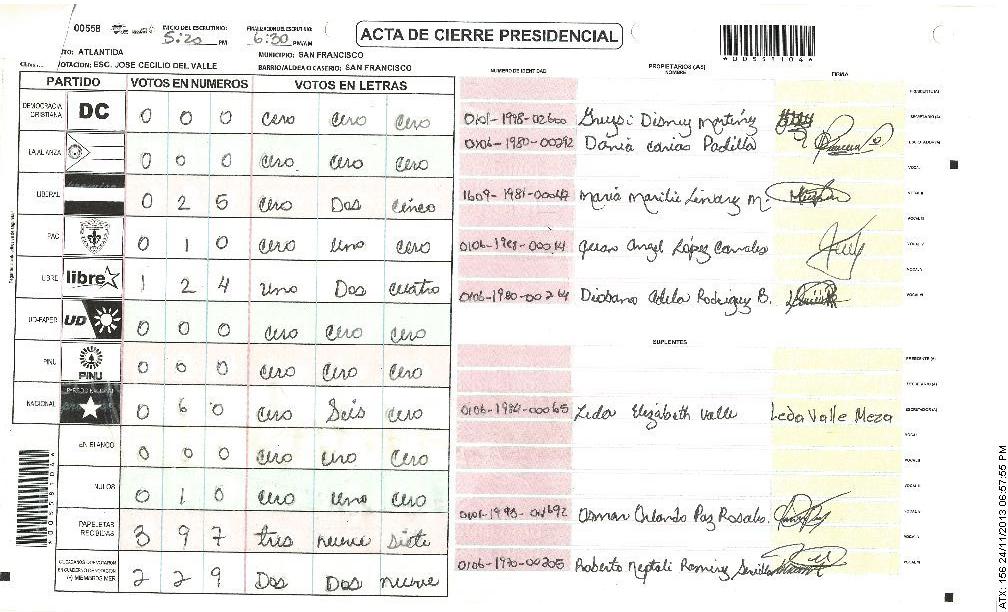 00558
INICIO DEL ESCRUTINIO: 5:20 PM
FINALIZACION DEL ESCRUTINIO: 6:30 PM/AM
ACTA DE CIERRE PRESIDENCIAL
*0055810A*
TO: ATLANTIDA
MUNICIPIO: SAN FRANCISCO
VOTACION: ESC. JOSE CECILIO DEL VALLE
BARRIO/ALDEA O CASERIO: SAN FRANCISCO
NUMERO DE IDENTIDAD
PROPIETARIOS (AS)
NOMBRE
FIRMA
PARTIDO VOTOS EN NUMEROS VOTOS EN LETRAS
DEMOCRACIA CRISTIANA DC 0 0 0 cero cero cero
LA ALIANZA 0 0 0 cero cero cero
LIBERAL 0 2 5 cero Dos cinco
PAC 0 1 0 cero uno cero
LIBRE libre 1 2 4 uno Dos cuatro
UD-FAPER UD 0 0 0 cero cero cero
PINU PINU 0 0 0 cero cero cero
NACIONAL 0 6 0 cero Seis cero
EN BLANCO 0 0 0 cero cero cero
NULOS 0 1 0 cero uno cero
PAPELETAS RECIBIDAS 3 9 7 tres nueve siete
2 2 9 Dos Dos nueve
PRESIDENTE(A)
0101-1998-02600 Disney Martinez
SECRETARIO (A)
0106-1980-00292 Dania carias Padilla
ESCRUTADOR(A)
VOCAL I
1609-1981-00042 Maria M.
VOCAL II
VOCAL III
0106-1988-00014 Juan Angel López Canales
VOCAL IV
VOCAL V
0106-1980-00214 Adela Rodriguez B.
VOCAL VI
SUPLENTES
PRESIDENTE (A)
SECRETARIO (A)
0106-1984-00065 Leda Elizabeth Valle Leda Valle Meza
ESCRUTADOR(A)
VOCAL I
VOCAL II
VOCAL III
Osman Orlando Paz Rosales.
VOCAL IV
VOCAL V
0106-1990-00205 Roberto Neptali Ramirez Sevilla
VOCAL VI
*0055810A*
ATX: 156 24/11/2013 06:57:55 PM